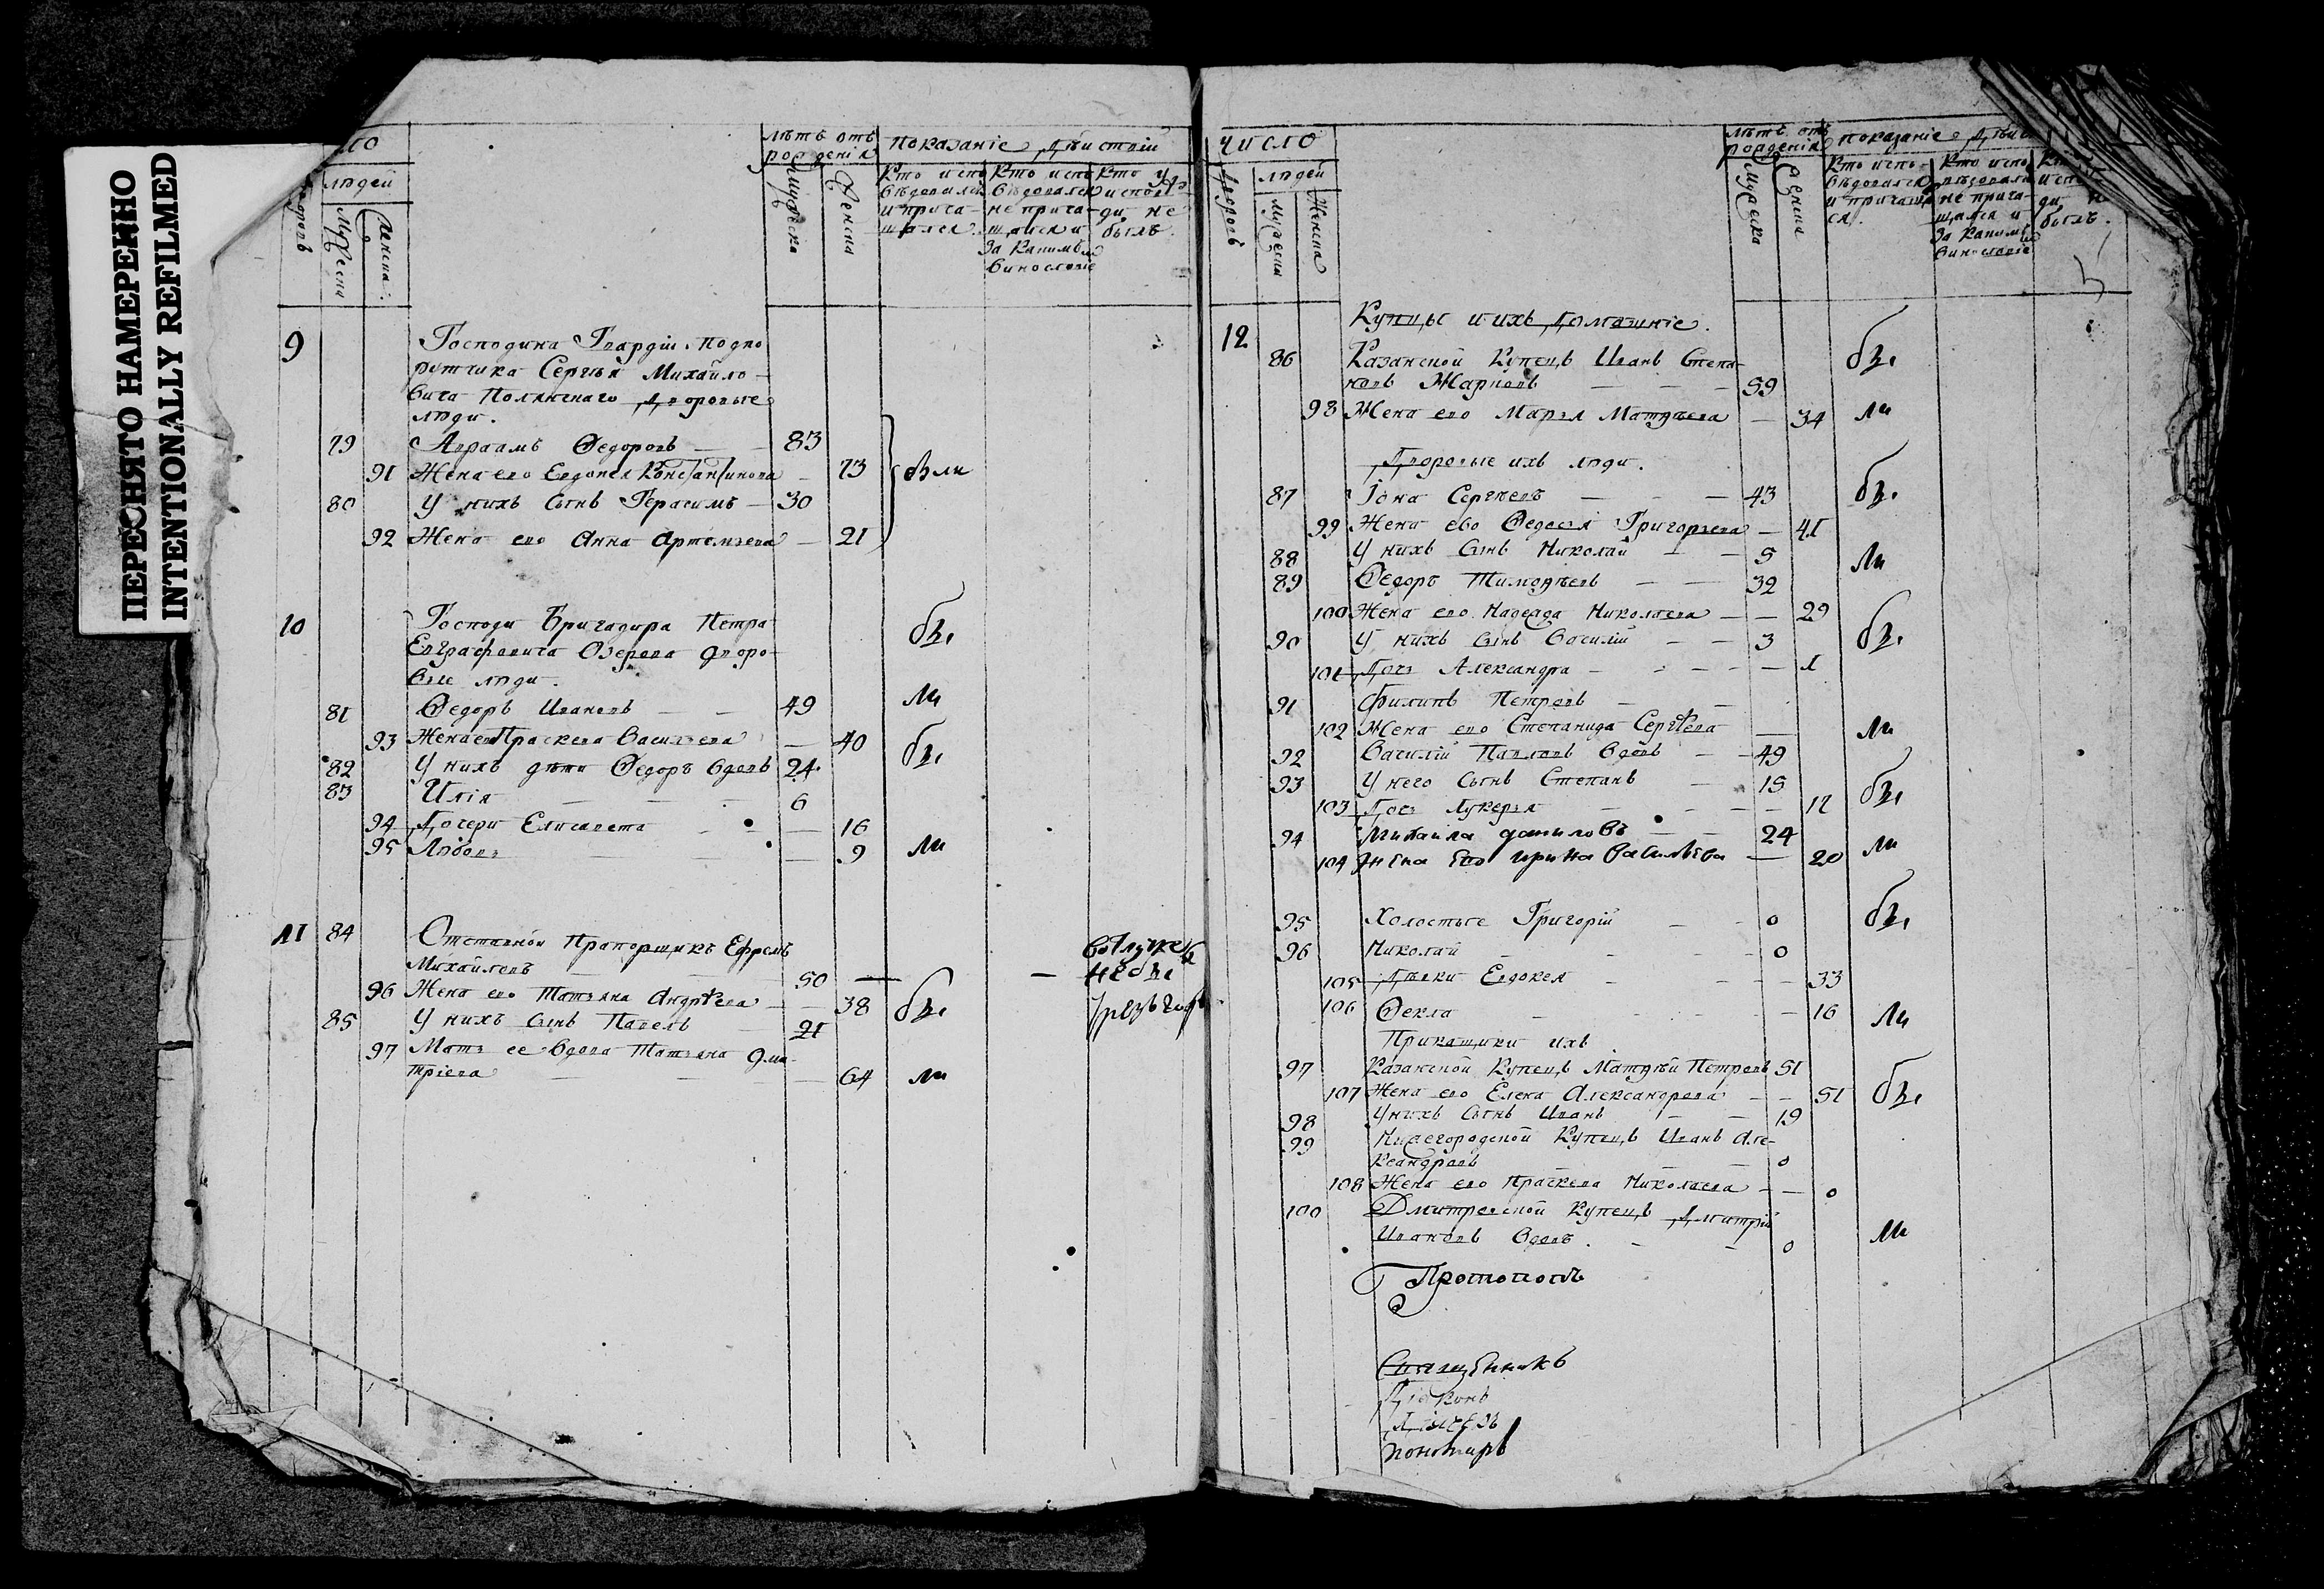 ПЕРЕСНЯТО НАМЕРЕННО
INTENTIONALLY REFILMED
людей
Мужеска
Женска
лѣтъ отъ рожденія
Мужеска
Женска
показаніе дѣйствій
Кто исповѣдовался и причащался.
Кто исповѣдовался не причащался и за какимъ винословіе
Кто у исповѣди не былъ.
9
Господина Гвардіи подпо
ручика Сергѣя Михайло-
вича Полянскаго дворовые
люди.
79 Авраамъ Ѳедоровъ — 83
91 Жена ево Евдокея Константинова — 73
80 У нихъ сынъ Герасимъ — 30
92 Жена ево Анна Артемьева — 21
были
10
Господи Бригадира Петра
Евграфовича Озерова дворо-
вые люди.
81 Ѳедоръ Ивановъ — 49
93 Жена ево Праскева Васильева — 40
82 У нихъ дѣти Ѳедоръ вдовъ 24
83 Илія — 6
94 Дочери Елисавета — 16
95 Любовь — 9
бы
ли
бы
ли
11 84 Отставной Прапорщикъ Ефремъ
Михайловъ — 50
96 Жена ево Татьяна Андрѣева — 38
85 У нихъ сынъ Павелъ 21
97 Мать ее вдова Татьяна Дми-
тріева — 64
бы
ли
число
дворовъ
людей
Мужеска
Женска
лѣтъ отъ рожденія
Мужеска
Женска
показаніе
Кто исповѣдовался и причащался.
Кто исповѣдовался не причащался и за какимъ винословіе
былъ.
12
Купцы и ихъ домашніе.
86 Казанской Купецъ Иванъ Степа-
новъ Жарковъ — 59
98 Жена ево Марья Матѳѣева — 34
Дворовые ихъ люди.
87 Іона Сергѣевъ — 43
99 Жена ево Ѳедосья Григорьева — 41
88 У нихъ сынъ Николай — 5
89 Ѳедоръ Тимоѳѣевъ — 32
100 Жена ево Надежда Николаева — 29
90 У нихъ сынъ Василій — 3
101 Дочь Александра — 1
91 Филипъ Петровъ —
102 Жена ево Степанида Сергѣева —
92 Василій Павловъ вдовъ — 49
93 У него сынъ Степанъ — 15
103 Дочь Лукерья — 12
94 Михаила даниловъ — 24
104 Жена Ево ирина василѣва — 20
95 Холостые Григорій — 0
96 Николай — 0
105 Дѣвки Евдокея — 33
106 Ѳекла — 16
Прикащики ихъ
97 Казанской Купецъ Матѳѣй Петровъ 51
107 Жена ево Елена Александрова — 51
98 У нихъ сынъ Иванъ — 19
99 Нижегородской Купецъ Иванъ Але-
ксандровъ — 0
108 Жена ево Праскева Николаева — 0
100 Дмитревской Купецъ Дмитрій
Ивановъ вдовъ. — 0
бы
ли
бы
ли
бы
ли
бы
ли
бы
ли
бы
ли
Протопопъ
Священникъ
Діаконъ
Пономарь